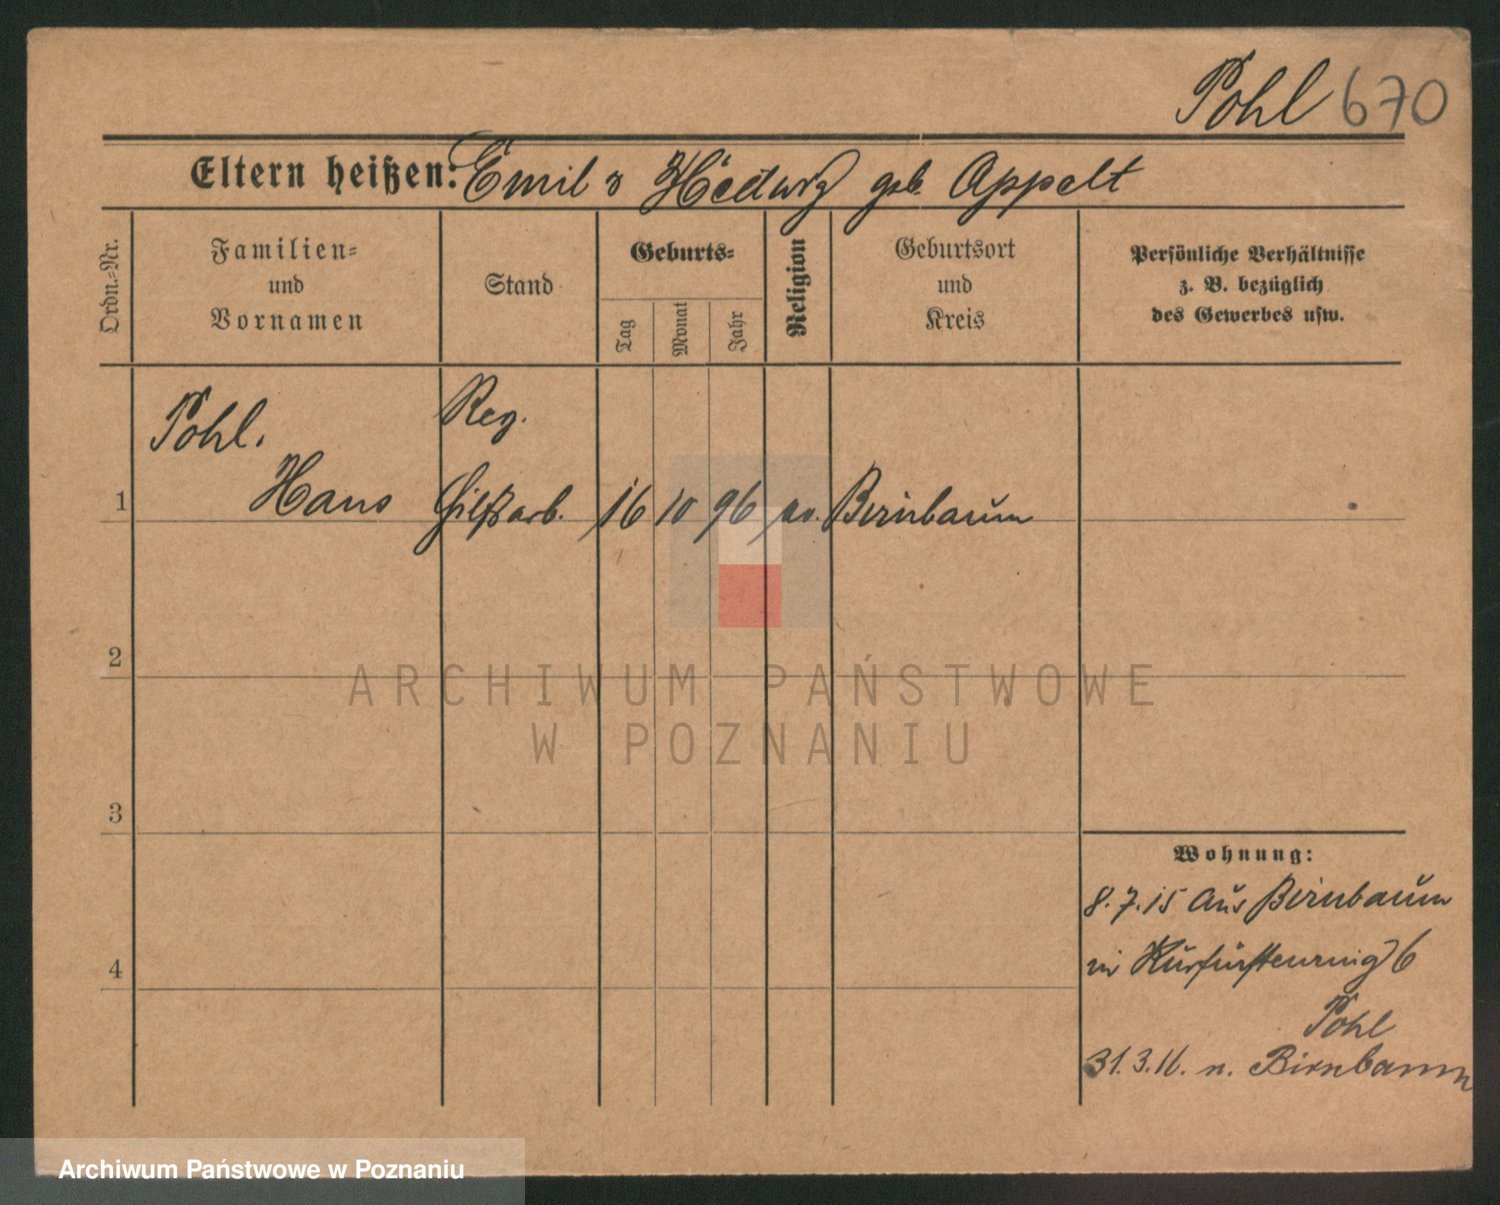 Pohl 670
Eltern heißen: Emil & Hedwig geb. Appelt
Ordn.-Nr.
Familien-
und
Vornamen
Stand
Geburts-
Tag
Monat
Jahr
Religion
Geburtsort
und
Kreis
Persönliche Verhältnisse
z. B. bezüglich
des Gewerbes usw.
Pohl.
Reg.
1 Hans Hilfsarb. 16 10 96 ev. Birnbaum
2
ARCHIWUM PAŃSTWOWE
W POZNANIU
3
Wohnung:
8.7.15 aus Birnbaum
4
in Kurfürstenring 6
Pohl
31.3.16. n. Birnbaum
Archiwum Państwowe w Poznaniu